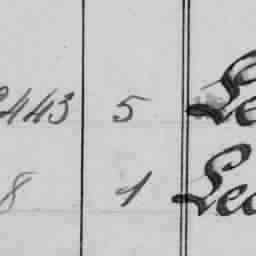 443 5 Le
8 1 Lec